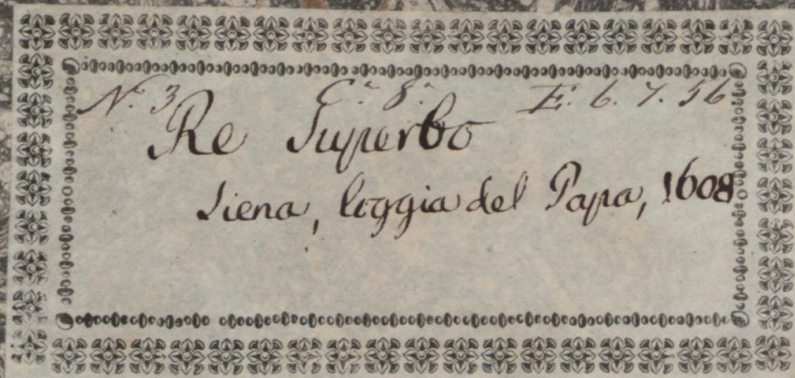 N.º 3 C.ª 8.ª E. 6. 7. 56
Re Superbo
Siena, loggia del Papa, 1608